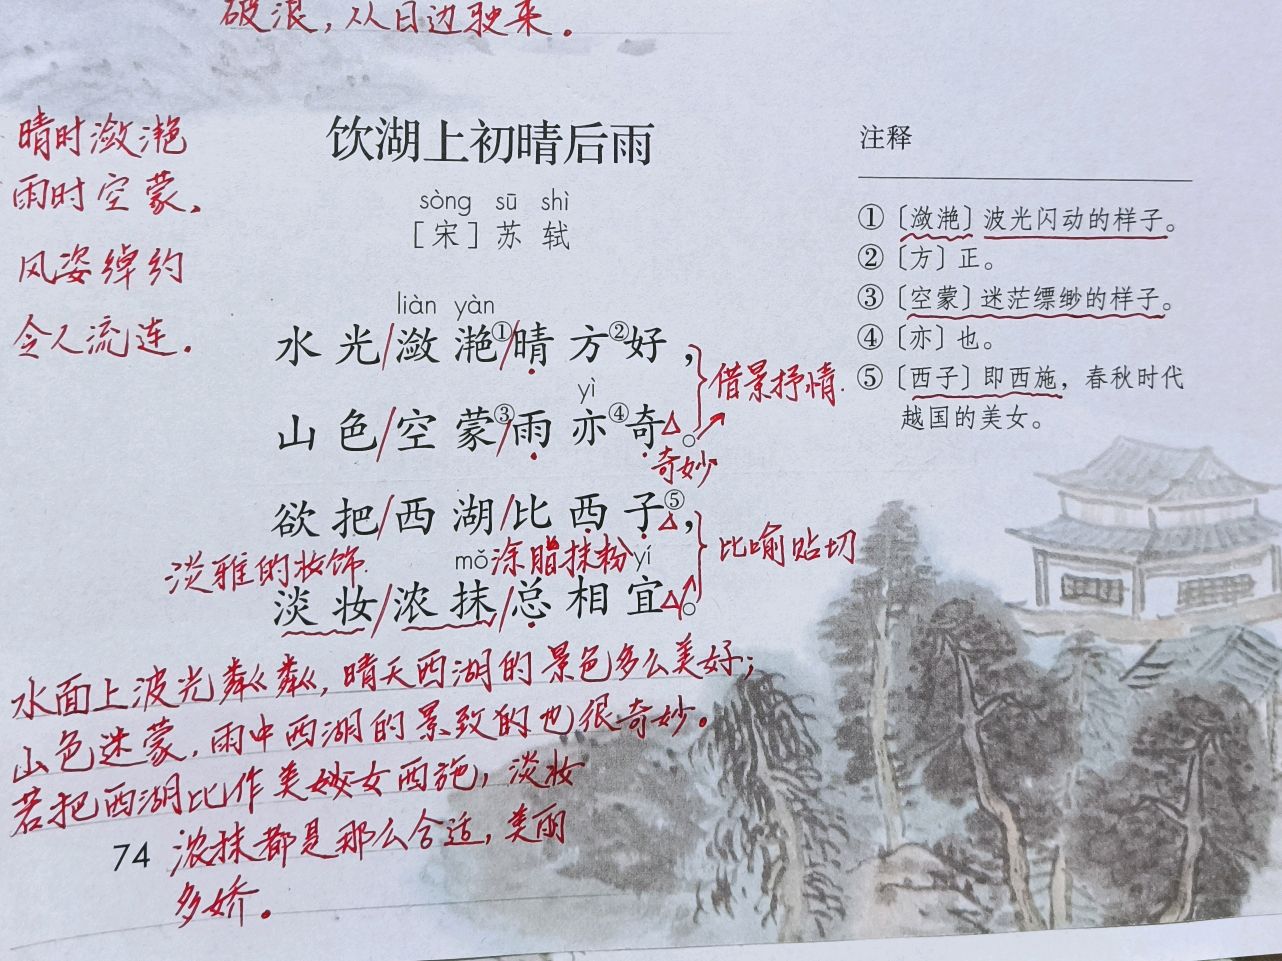 破浪，从日边驶来。
晴时潋滟
雨时空蒙，
风姿绰约
令人流连。
饮湖上初晴后雨
sòng sū shì
［宋］苏 轼
liàn yàn
水光/潋滟①/晴方②好，
借景抒情.
yì
山色/空蒙③/雨亦④奇。
奇妙
欲把/西湖/比西子⑤，
比喻贴切
淡雅的妆饰.
mǒ 涂脂抹粉 yí
淡妆/浓抹/总相宜。
水面上波光粼粼，晴天西湖的景色多么美好；
山色迷蒙，雨中西湖的景致的也很奇妙。
若把西湖比作美妙女西施，淡妆
浓抹都是那么合适，美丽
多娇。
74
注释
①〔潋滟〕波光闪动的样子。
②〔方〕正。
③〔空蒙〕迷茫缥缈的样子。
④〔亦〕也。
⑤〔西子〕即西施，春秋时代
越国的美女。